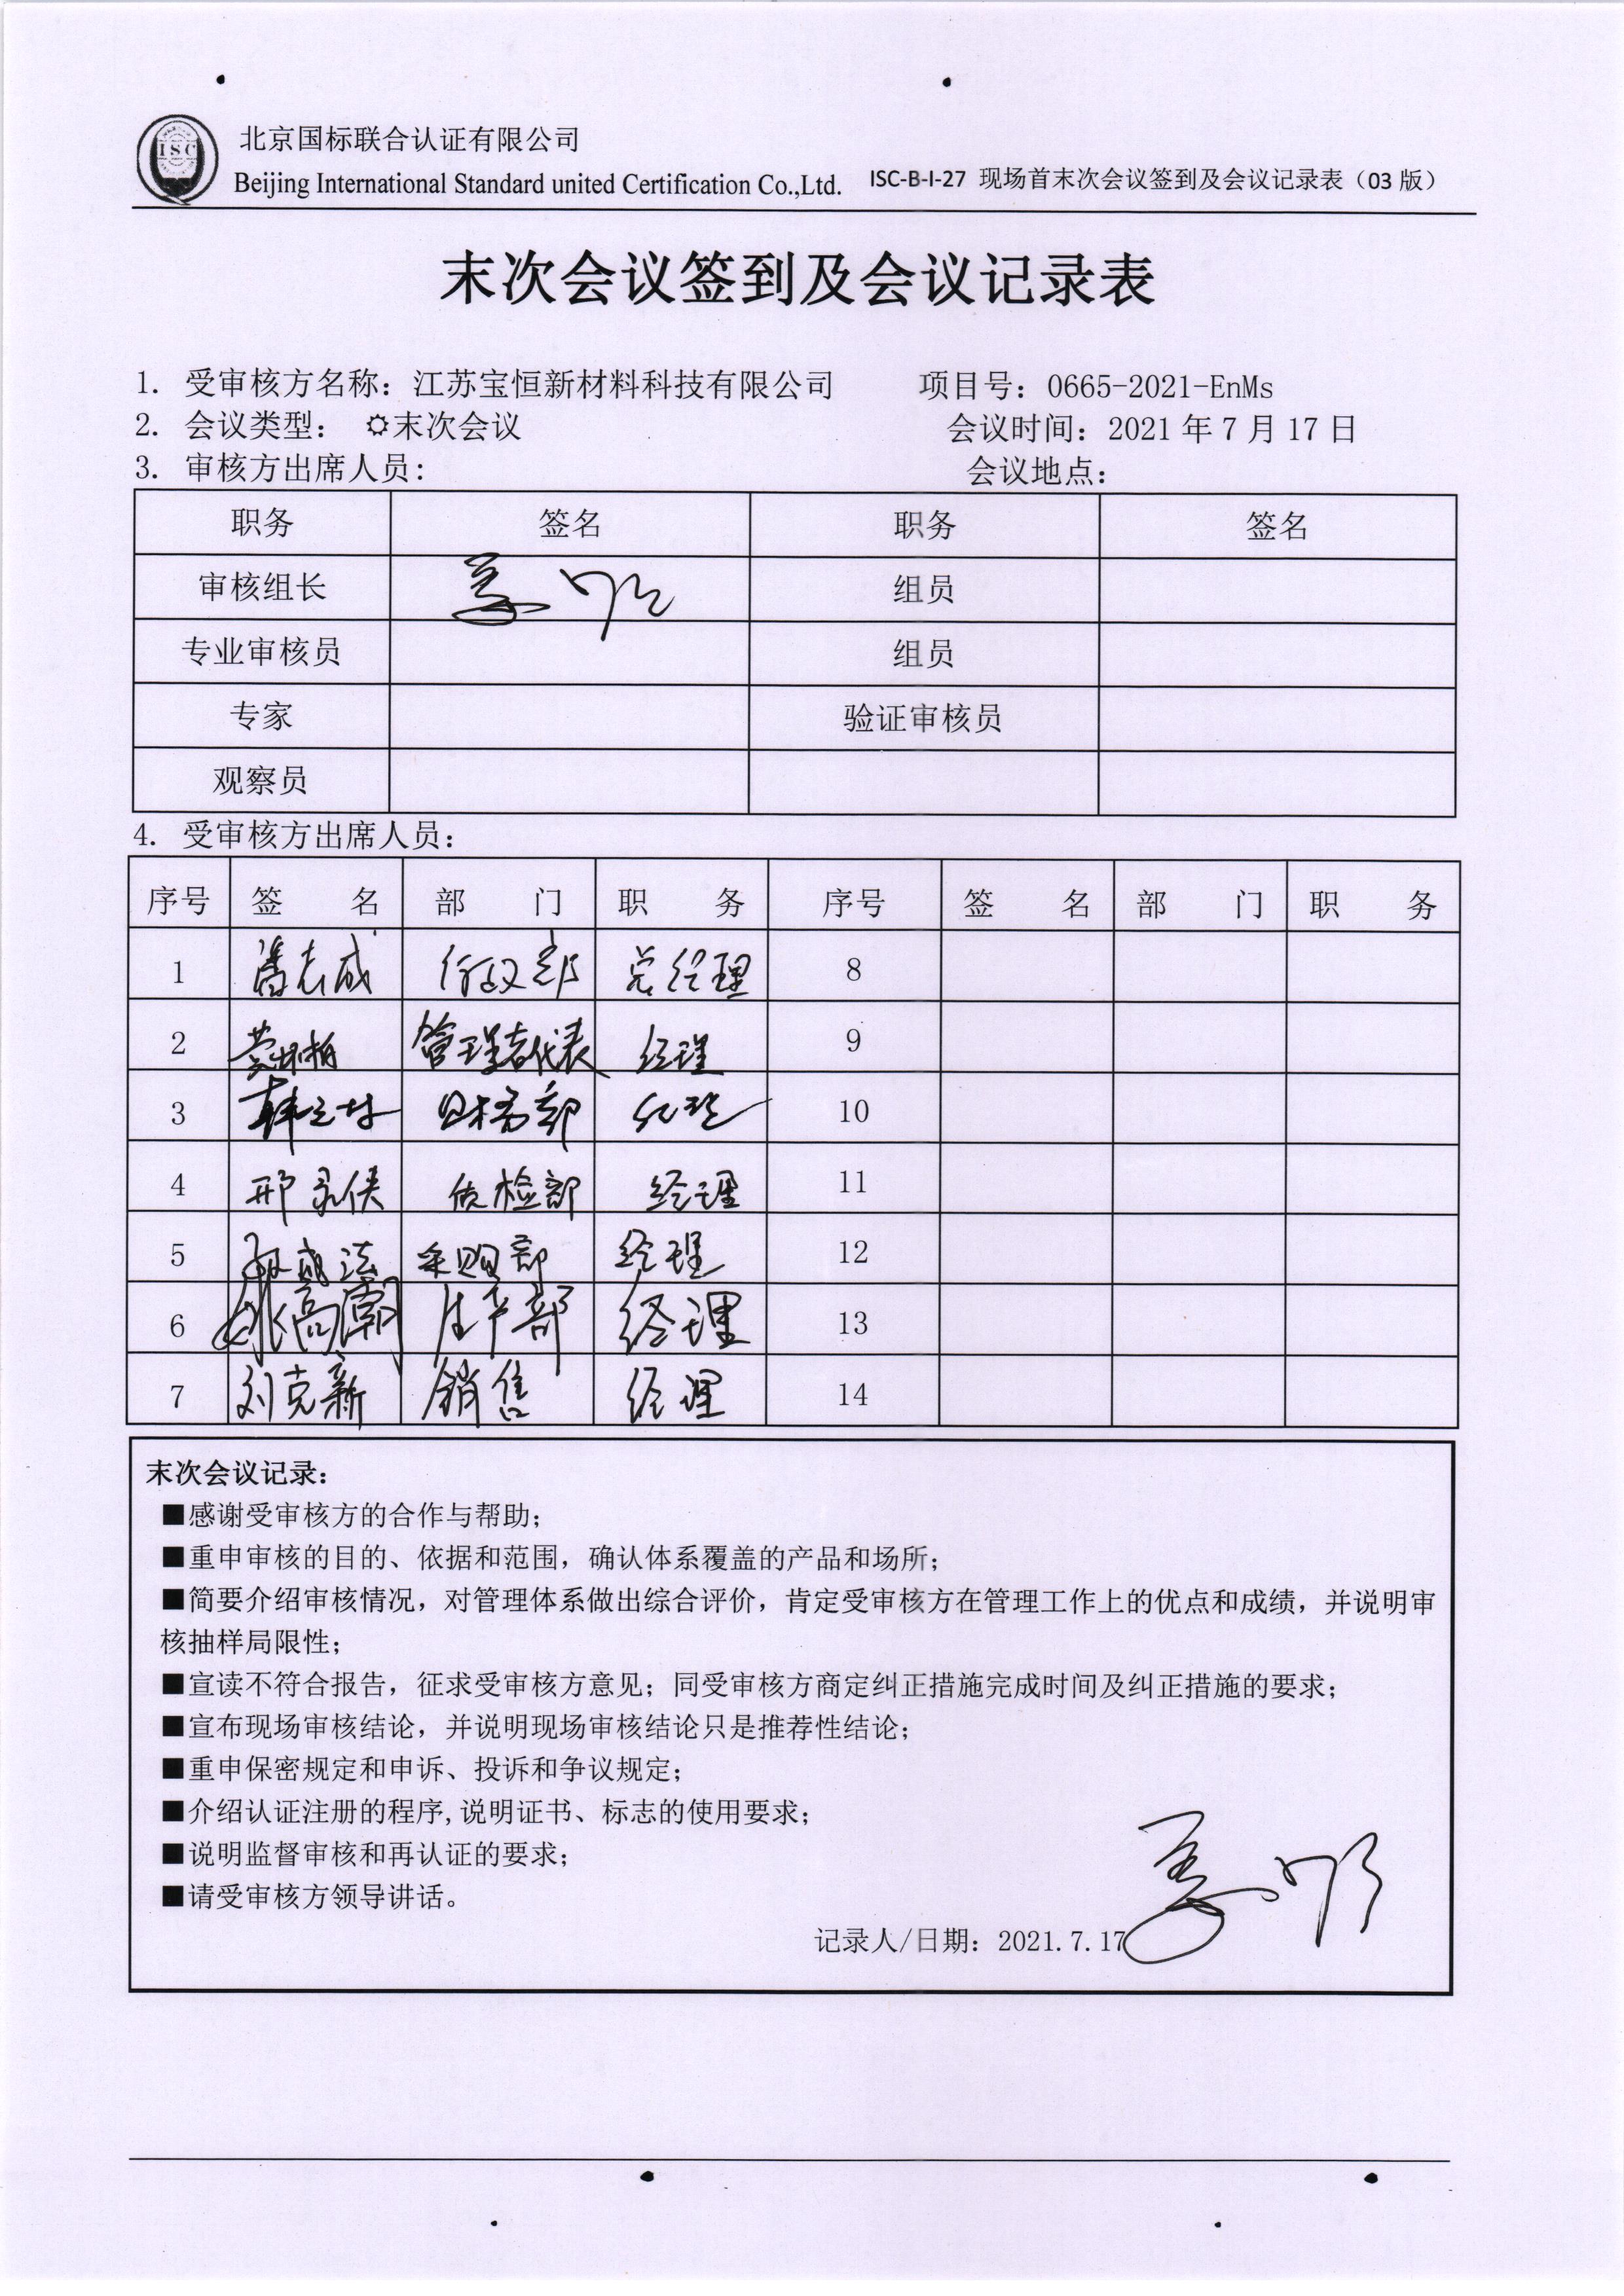 ISC
北京国标联合认证有限公司
Beijing International Standard united Certification Co.,Ltd. ISC-B-I-27 现场首末次会议签到及会议记录表（03 版）
末次会议签到及会议记录表
1. 受审核方名称：江苏宝恒新材料科技有限公司 项目号：0665-2021-EnMs
2. 会议类型： ☼末次会议 会议时间：2021 年 7 月 17 日
3. 审核方出席人员： 会议地点：
职务 签名 职务 签名
审核组长 姜 组员
专业审核员 组员
专家 验证审核员
观察员
4. 受审核方出席人员：
序号 签 名 部 门 职 务 序号 签 名 部 门 职 务
1 潘志成 行政部 总经理 8
2 管理者代表 经理 9
3 韩 财务部 经理 10
4 邢永侠 质检部 经理 11
5 采购部 经理 12
6 高潮 生产部 经理 13
7 刘克新 销售 经理 14
末次会议记录：
■感谢受审核方的合作与帮助；
■重申审核的目的、依据和范围，确认体系覆盖的产品和场所；
■简要介绍审核情况，对管理体系做出综合评价，肯定受审核方在管理工作上的优点和成绩，并说明审
核抽样局限性；
■宣读不符合报告，征求受审核方意见；同受审核方商定纠正措施完成时间及纠正措施的要求；
■宣布现场审核结论，并说明现场审核结论只是推荐性结论；
■重申保密规定和申诉、投诉和争议规定；
■介绍认证注册的程序,说明证书、标志的使用要求；
■说明监督审核和再认证的要求；
■请受审核方领导讲话。
记录人/日期：2021.7.17 姜